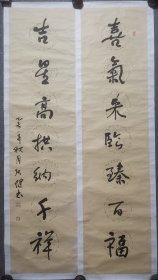 喜氣来臨臻百福
吉星高拱納千祥